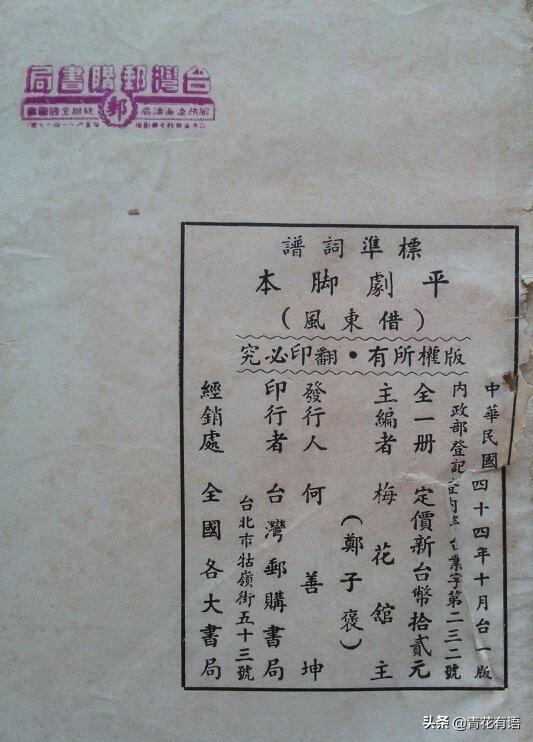 台灣郵購書局
郵
標準詞譜
平劇脚本
(借東風)
版權所有・翻印必究
中華民國四十四年十月台一版
內政部登記 字第二三二號
全一册 定價新台幣拾貳元
主編者 梅花舘主
(鄭子褒)
發行人 何善坤
印行者 台灣郵購書局
台北市牯嶺街五十三號
經銷處 全國各大書局
头条 @青花有语